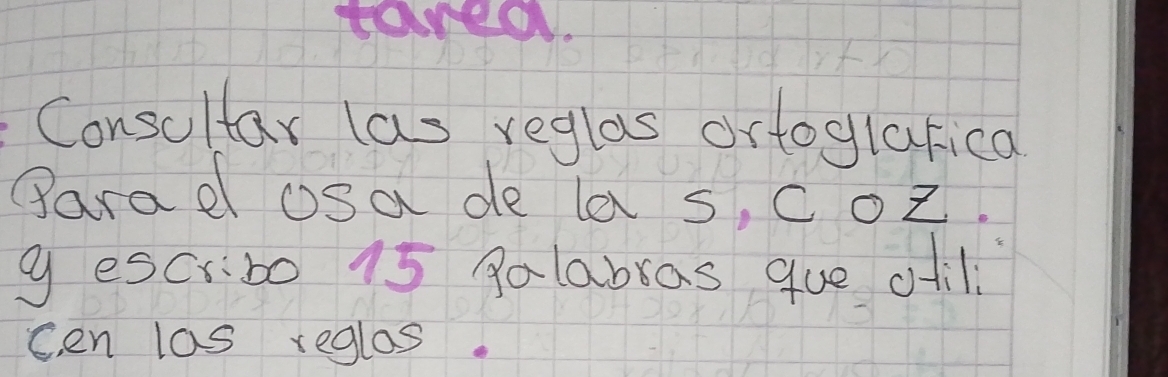 tarea.
Consultar las reglas ortoglafica
Para el usa de la s, c o z.
y escribo 15 Palabras que utili
cen las reglas.